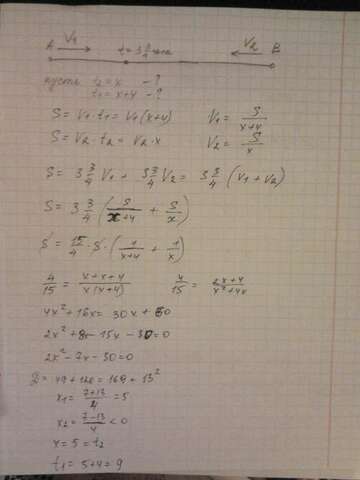 A V₁ t = 3 3/4 часа V₂ B
пусть t₂ = x - ?
t₁ = x+4 - ?
S = V₁·t₁ = V₁(x+4) V₁ = S/(x+4)
S = V₂·t₂ = V₂·x V₂ = S/x
S = 3 3/4 V₁ + 3 3/4 V₂ = 3 3/4 (V₁+V₂)
S = 3 3/4 (S/(x+4) + S/x)
S = 15/4 · S · (1/(x+4) + 1/x)
4/15 = (x+x+4)/(x(x+4)) 4/15 = (2x+4)/(x²+4x)
4x²+16x = 30x + 60
2x²+8x-15x-30=0
2x²-7x-30=0
D = 49+120=169=13²
x₁ = (7+13)/4 = 5
x₂ = (7-13)/4 < 0
x = 5 = t₂
t₁ = 5+4 = 9